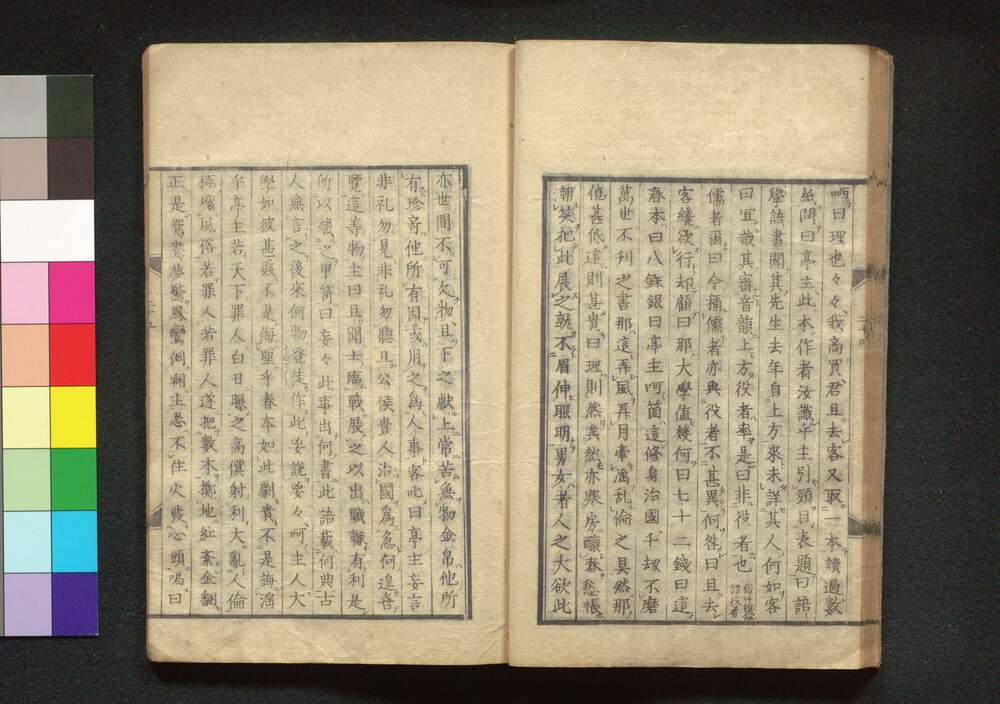 哂曰理也々々我商買君且去客又取一本讀過數
紙問曰亭主此本作者汝識乎主引頸目表題曰諳
學諳書聞其先生去年自上方來未詳其人何如客
曰宜哉其審音韻上方役者率是曰非役者也
儒者爾曰今稱儒者亦與役者不甚異何咎曰且去
客纔欲行却顧曰那大學值幾何曰七十二錢曰這
春本曰八銖銀曰亭主呵箇這修身治國千劫不磨
萬世不刊之書那這弄風弄月導淫乱倫之具然那
值甚低這則甚貴曰理則然矣然亦寒房釀春愁帳
潮笑把此展之孰不眉伸眼明男女者人之大欲此
亦世間不可欠物且下之獻上常苦無物金帛他所
有珍奇他所有因或用之為人事客叱曰亭主妄言
非礼勿見非礼勿聽且公侯貴人治國為急何遑喜
覽這等物主曰且聞士臨戰展之以出戰輙有利是
所以藏之甲笥曰妄々此事出何書此語載何典古
人無言之後來何物登徒作此妄說妄々呵主人大
學如彼甚賤不是侮聖乎春本如此剔貴不是誨滛
乎亭主若天下罪人白日曝之高價射利大亂人倫
極壞風俗若罪人若罪人遂把數本擲地紅紊金翻
正是鴛鴦夢驚鳳鸞倒翔主忍不住火發心頭喝曰